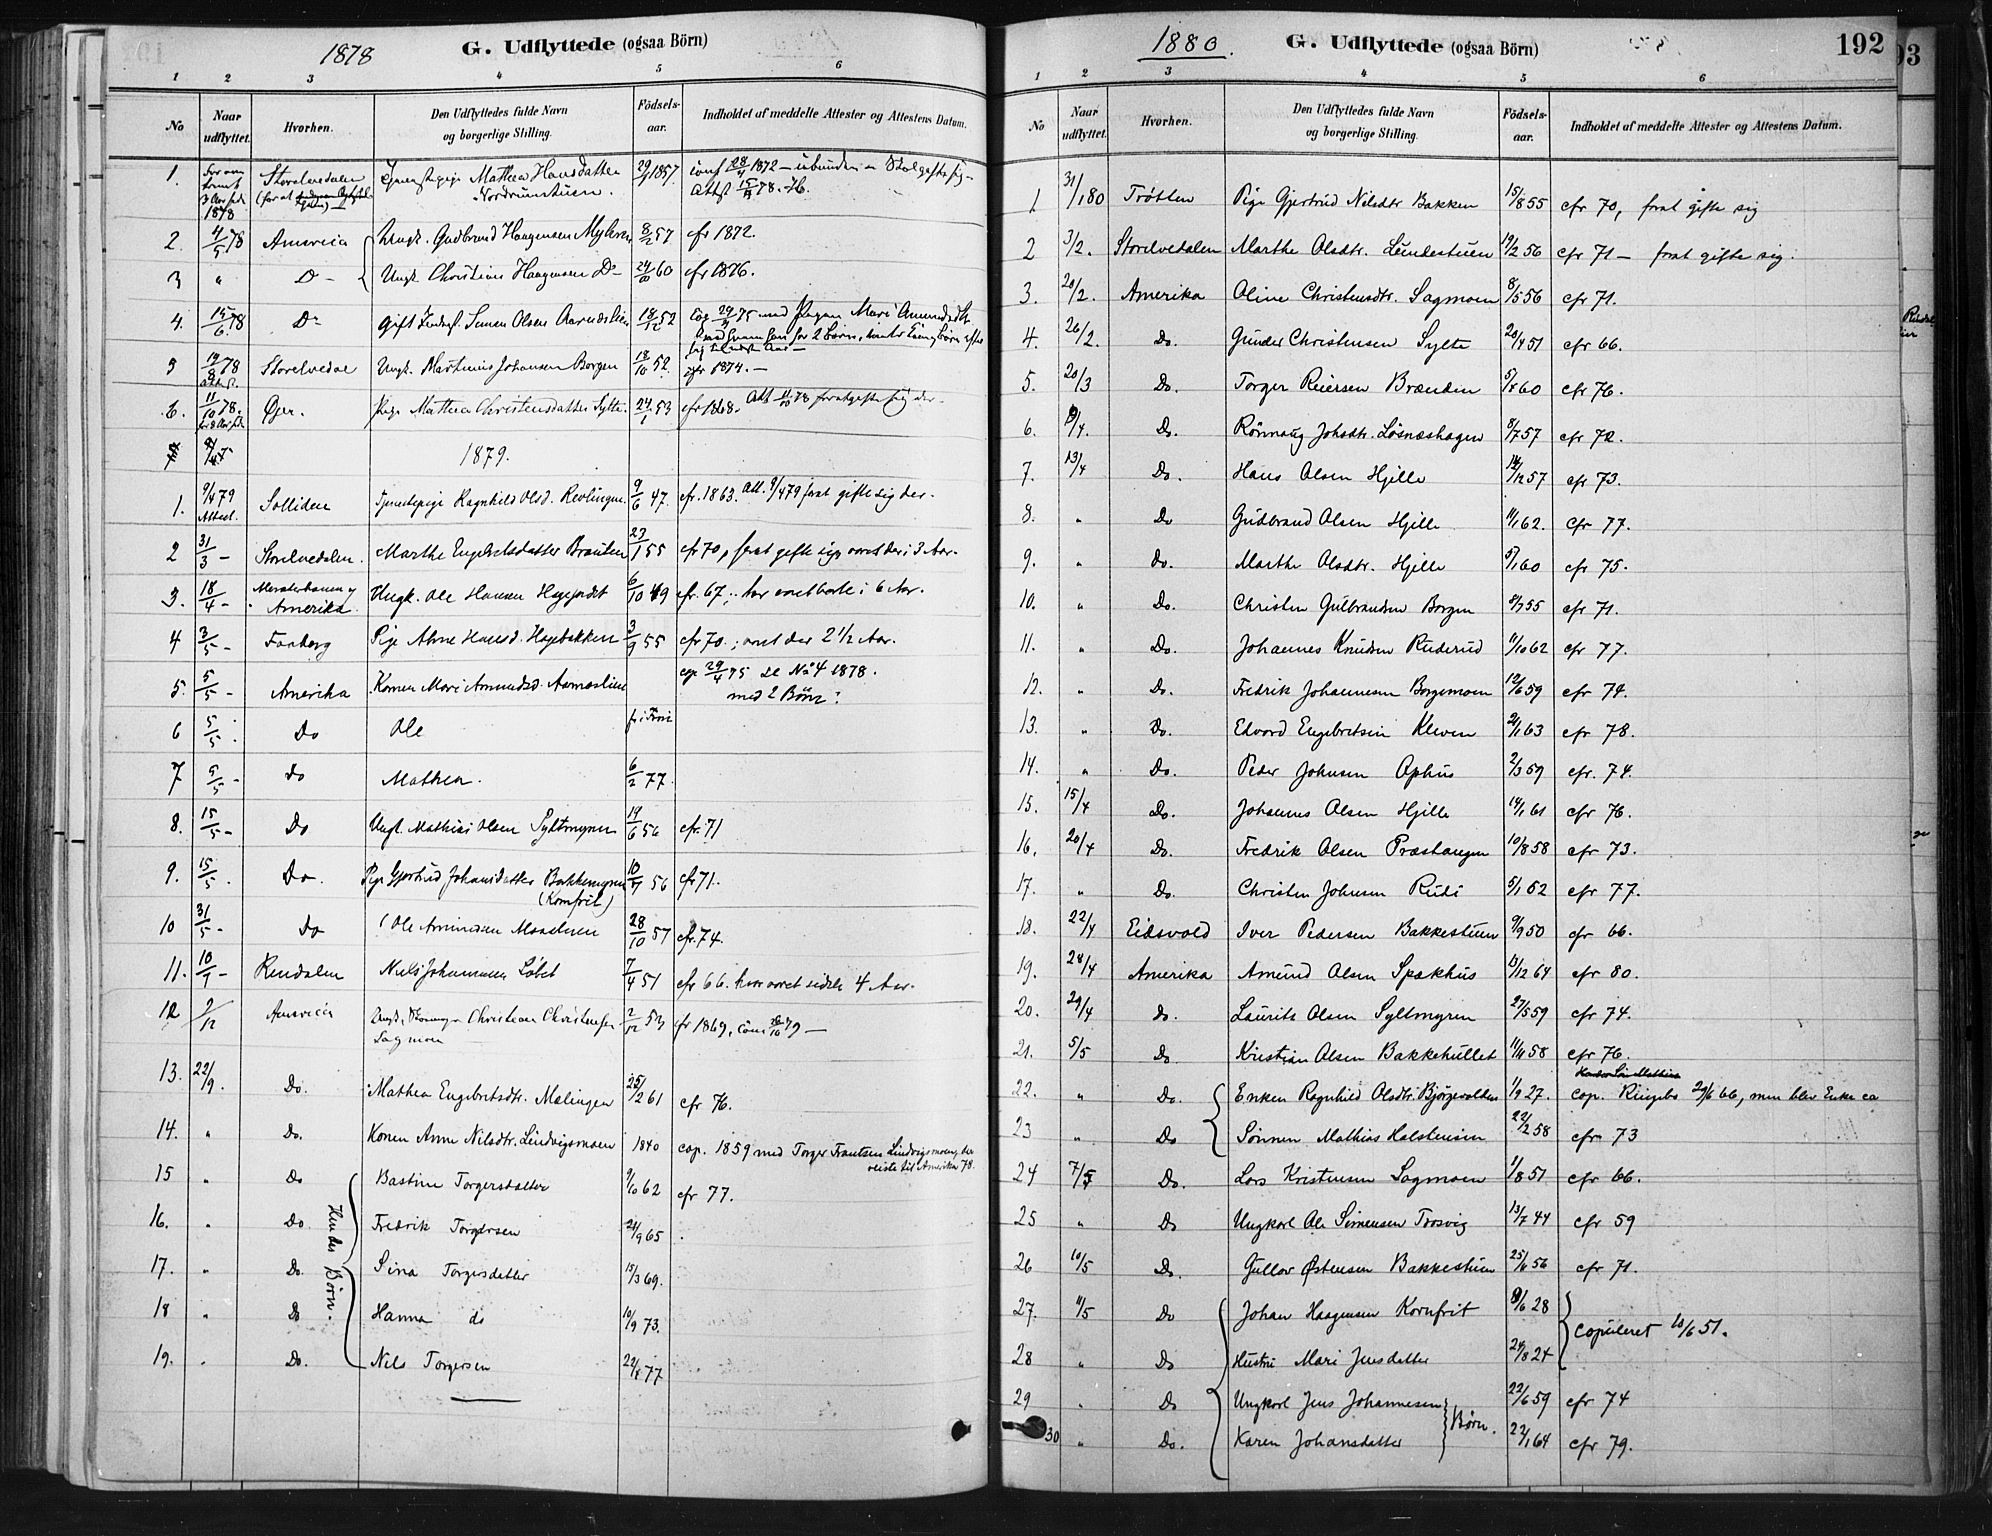 1878
G. Udflyttede (ogsaa Börn)
1 2 3 4 5 6
No Naar udflyttet. Hvorhen. Den Udflyttedes fulde Navn og borgerlige Stilling. Födsels-aar. Indholdet af meddelte Attester og Attestens Datum.
1. 3 Aar 1878 Storelvedalen (for at Mathea Hansdatter 29 1857 conf 1872 — ubunden
Nordrumstuen. Attst 78.
2. 4/5 78 America Ungk. Gudbrand Haagensen 8/2 57 cfr 1872.
3 " Do Ungk. Christian Haagensen Do 60 cfr 1876.
4. 15/6 78 Do Gift Simen Olsen 18/12 52 cop 29/4 75 med Mari Amundsdtr
5 78 Storelvedal Ungk. Martinius Johansen Borgen 18/10 52. cfr 1874. —
6. 11/10 78. Øier. Pige Mathea Christensdatter Sylte. 24/1 53 cfr 1868. Att 78 forat gifte sig der.
1879.
1. 9/4 79 Attest. Solliden Tjenestepige Ragnhild Olsd. 9/6 47. cfr. 1863. Att. 9/4 79 forat gifte sig der.
2 31/3 – Storelvedalen. Marthe Engebretsdatter Brauten 23/1 55 cfr 70, forat gifte sig, været der i 3 Aar.
3. 18/4 – Amerika Ungk. Ole Hansen 6/10 49 cfr. 67; har været borte i 6 Aar.
4 3/5 – Faaberg Pige Anne Hansd. Hagebakken 3/9 55 cfr 70.; været der 2 1/2 Aar.
5. 5/5 – Amerika Konen Mari Amundsd. cop 29/4 75 se No 4 1878.
med 2 Börn:
6 5/5. Do Ole
7 5/5 – Do Mathea. 6/2 77.
8. 15/5 – Do Ungk. Mathias Olsen Syltmyren 6 56 cfr. 71
9. 15/5. Do Pige Gjertrud Johansdatter Bakkemyren 56 cfr 71.
(Kornfrit)
10 31/5 – Do Ole Amundsen 28/10 57 cfr. 74.
11. 10/9 – Rendalen Niels Johannesen 7/4 51 cfr 66. har været sidste 4 Aar.
12 2/12 America Christian Christensen 2/12 53 cfr 1869,
Sagmoen
13. 22/9. Do. Mathea Engebretsdtr. Mælingen 25/2 61 cfr 76.
14. " Do. Konen Anne Nilsdtr. Lindvigsmoen 1840 cop. 1859 med Torger Frantsen Lindvigsmoen, der
reiste til Amerika 78.
15 " Do Bastine Torgersdatter 9/10 62 cfr 77.
16. " Do. Fredrik Torgersen 24/9 65
17. " Do. Sina Torgersdatter 15/3 69.
18 " Do Hanna do 10/9 73.
19. " Do. Nils Torgersen 22 77
Hendes Børn.
1880.
G. Udflyttede (ogsaa Börn)
192
1 2 3 4 5 6
No Naar udflyttet. Hvorhen. Den Udflyttedes fulde Navn og borgerlige Stilling. Födsels-aar. Indholdet af meddelte Attester og Attestens Datum.
1 31/1 80 Trötten Pige Gjertrud Nilsdtr Bakken 15/8 55 cfr 70, forat gifte sig
2 3/2. Storelvedalen Marthe Olsdtr. Lundestuen 19/2 56 cfr 71 – forat gifte sig.
3. 20/2. Amerika Oline Christensdtr. Sagmoen 8/5 56 cfr 71.
4. 26/2. Do. Gunder Christensen Sylte 20/4 51 cfr 66.
5. 20/3 Do. Torger Reiersen Brænden 60 cfr 76.
6. Do. Rönnaug Johsdtr. Løsnæshagen 8/7 57 cfr 72.
7. 13/4 Do. Hans Olsen Hjelle 12 57 cfr 73.
8. " Do Gudbrand Olsen Hjelle 11/1 62. cfr 77.
9. " Do. Marthe Olsdtr. Hjelle 5/1 60 cfr 75.
10. " Do. Christen Gulbrandsen Borgen 8/7 55 cfr 71.
11. " Do. Johannes Knudsen Ruderud 11/10 62 cfr 77.
12. " Do. Fredrik Johannesen Borgemoen 12/6 59 cfr 74.
13. " Do. Edvard Engebretsen Kleven 2/1 63 cfr 78.
14. " Do. Peder Johnsen Ophus 2/3 59 cfr. 74.
15. 15/4 Do. Johannes Olsen Hjelle 14/1 61 cfr 76.
16. 20/4 Do. Fredrik Olsen Præstangen 10/8 58 cfr 73.
17. " Do. Christen Johnsen Rudi 5/1 62 cfr 77.
18. 22/4 Eidsvold Iver Pedersen Bakkestuen 9/9 50 cfr 66.
19. 28/4 Amerika Amund Olsen Spækhus 13/12 64 cfr 80.
20. 29/4 Do. Laurits Olsen Syltmyren 27/5 59 cfr 74.
21. 5/5 Do. Kristian Olsen Bakkehullet 11/11 58 cfr 76.
22. " Do. Enken Ragnhild Olsdtr. 1/9 27. cop. Ringebo 29/6 66, men blev Enke ca
23 " Do Sönnen Mathias Halstensen 22/2 58 cfr 73
24 7/5 Do. Lars Kristensen Sagmoen 1/8 51 cfr 66.
25 " Do Ungkarl Ole Simensen Trosvig 13/7 44 cfr 59
26 10/5 Do. Gullov Østensen Bakkestuen 25/6 56 cfr 71.
27. 11/5 Do Johan Haagensen Kornfrit 9/6 28
Copuleret 10/6 51.
28 " Do Hustru Mari Jensdatter 24/8 24
29 " Do Ungkarl Jens Johannesen 22/6 59 cfr 74
Børn.
30 " Do. Karen Johansdatter 22/1 64 cfr 79.